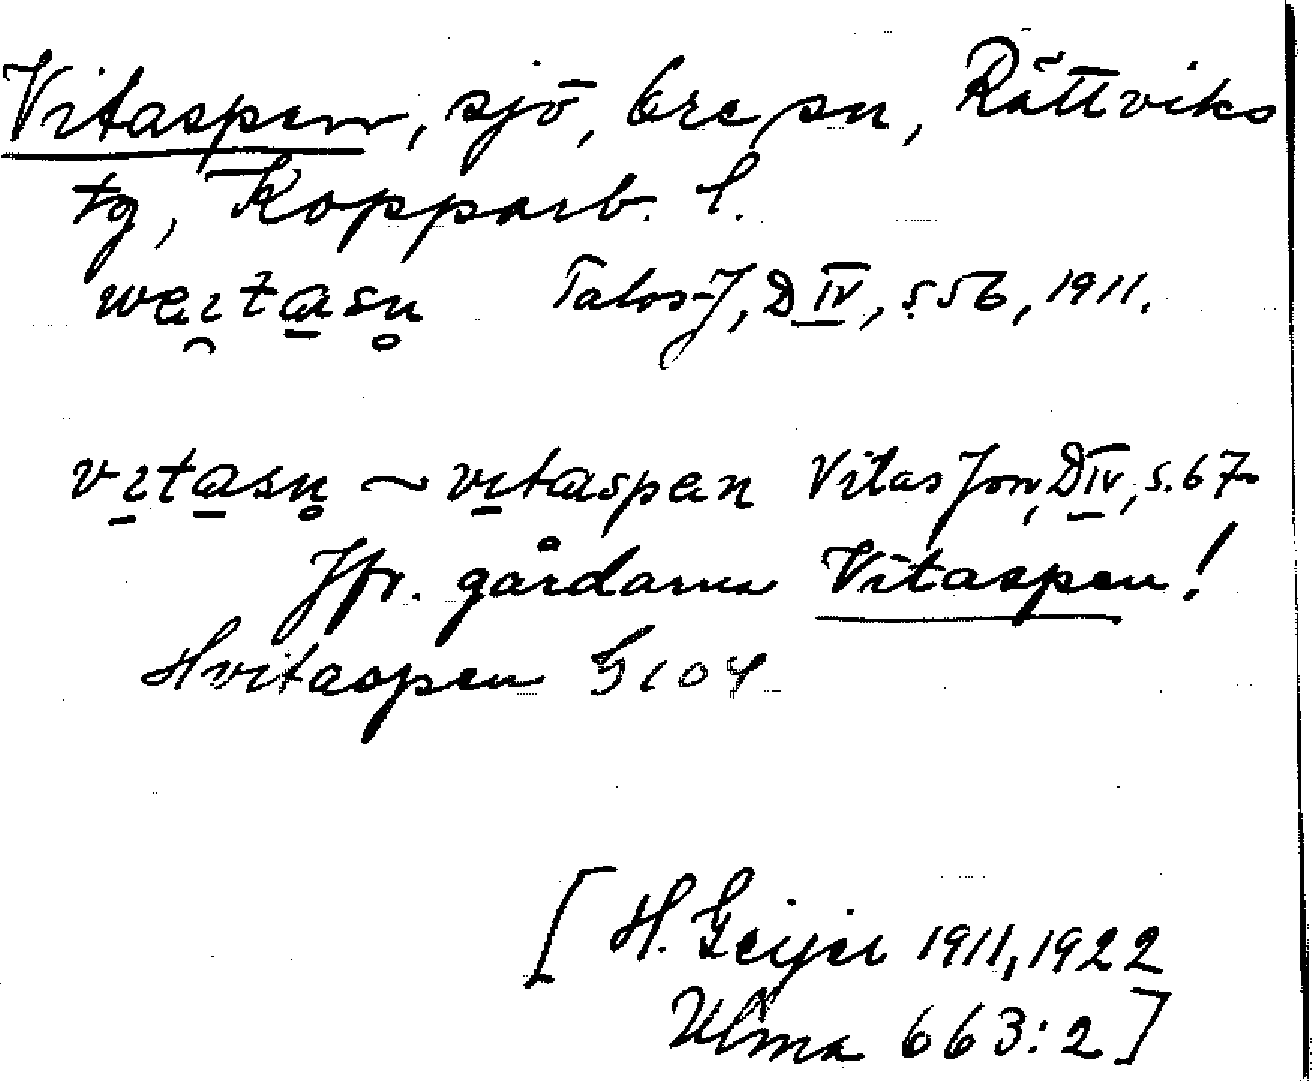 Vitaspen, sjö, Ore sn, Rättviks
tg, Kopparb. l.
wei̯ta̱sn̥ Talos-J, D IV, s. 56, 1911.
vi̱ta̱sn̥ ~ vi̱taspen Vitas Jon, D IV, s. 67
Jfr. gårdarna Vitaspen!
Hvitaspen G 104
[H. Geijer 1911, 1922
Ulma 663:2]